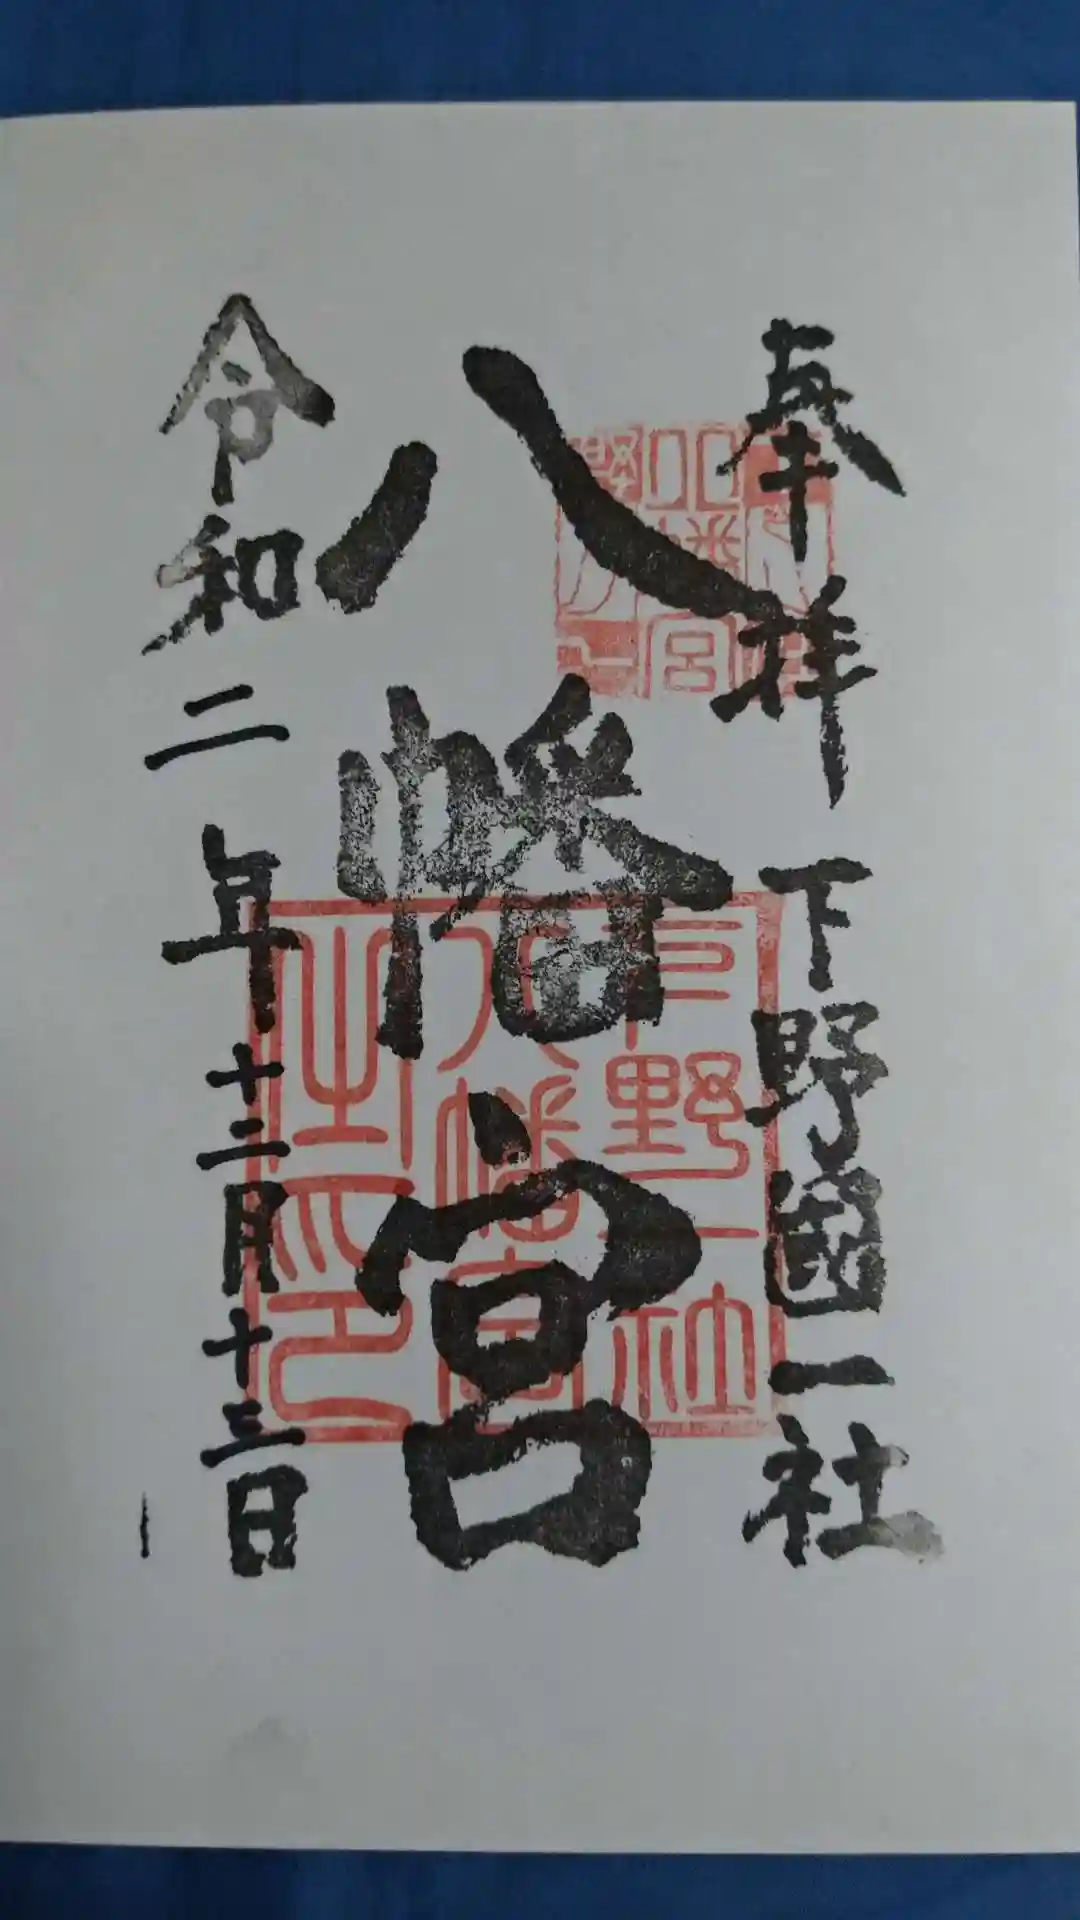 奉拝 下野國一社
八幡宮
令和二年十二月十三日
下野一社
八幡宮
之印